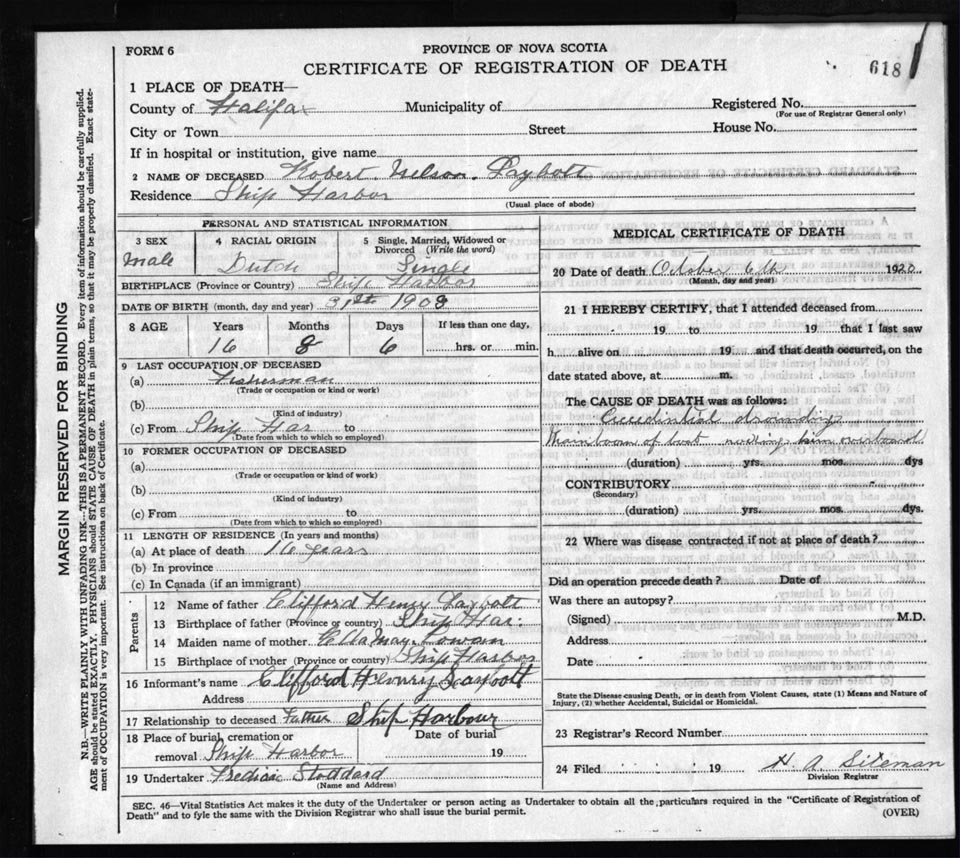 FORM 6
PROVINCE OF NOVA SCOTIA
CERTIFICATE OF REGISTRATION OF DEATH
618
1 PLACE OF DEATH—
County of Halifax Municipality of Registered No.
(For use of Registrar General only)
City or Town Street House No.
If in hospital or institution, give name
2 NAME OF DECEASED Robert Nelson
Residence Ship Harbor
(Usual place of abode)
PERSONAL AND STATISTICAL INFORMATION
3 SEX 4 RACIAL ORIGIN 5 Single, Married, Widowed or Divorced (Write the word)
Male Dutch Single
BIRTHPLACE (Province or Country) Ship Harbor
DATE OF BIRTH (month, day and year) 31st 1908
8 AGE Years Months Days If less than one day,
16 8 6 hrs. or min.
9 LAST OCCUPATION OF DECEASED
(a) Fisherman
(Trade or occupation or kind or work)
(b)
(Kind of industry)
(c) From Ship Har to
(Date from which to which so employed)
10 FORMER OCCUPATION OF DECEASED
(a)
(Trade or occupation or kind of work)
(b)
(Kind of industry)
(c) From to
(Date from which to which so employed)
11 LENGTH OF RESIDENCE (In years and months)
(a) At place of death 16 years
(b) In province
(c) In Canada (if an immigrant)
Parents
12 Name of father Clifford Henry
13 Birthplace of father (Province or country) Ship Har.
14 Maiden name of mother Ella May
15 Birthplace of mother (Province or country) Ship Harbor
16 Informant's name Clifford Henry
Address
17 Relationship to deceased Father Ship Harbour
18 Place of burial, cremation or Date of burial
removal Ship Harbor 19
19 Undertaker Stoddard
(Name and Address)
MEDICAL CERTIFICATE OF DEATH
20 Date of death October 6th 192
(Month, day and year)
21 I HEREBY CERTIFY, that I attended deceased from
19 to 19 that I last saw
h alive on 19 and that death occurred, on the
date stated above, at m.
The CAUSE OF DEATH was as follows:
drowning
Main boom of boat him overboard
(duration) yrs. mos. dys
CONTRIBUTORY
(Secondary)
(duration) yrs. mos. dys.
22 Where was disease contracted if not at place of death?
Did an operation precede death? Date of
Was there an autopsy?
(Signed) M.D.
Address
Date
State the Disease causing Death, or in death from Violent Causes, state (1) Means and Nature of
Injury, (2) whether Accidental, Suicidal or Homicidal.
23 Registrar's Record Number
24 Filed 19 H A Siteman
Division Registrar
SEC. 46—Vital Statistics Act makes it the duty of the Undertaker or person acting as Undertaker to obtain all the particulars required in the "Certificate of Registration of
Death" and to fyle the same with the Division Registrar who shall issue the burial permit.
(OVER)
MARGIN RESERVED FOR BINDING
N.B.—WRITE PLAINLY WITH UNFADING INK—THIS IS A PERMANENT RECORD. Every item of information should be carefully supplied.
AGE should be stated EXACTLY. PHYSICIANS should STATE CAUSE OF DEATH in plain terms, so that it may be properly classified. Exact state-
ment of OCCUPATION is very important. See instructions on back of Certificate.